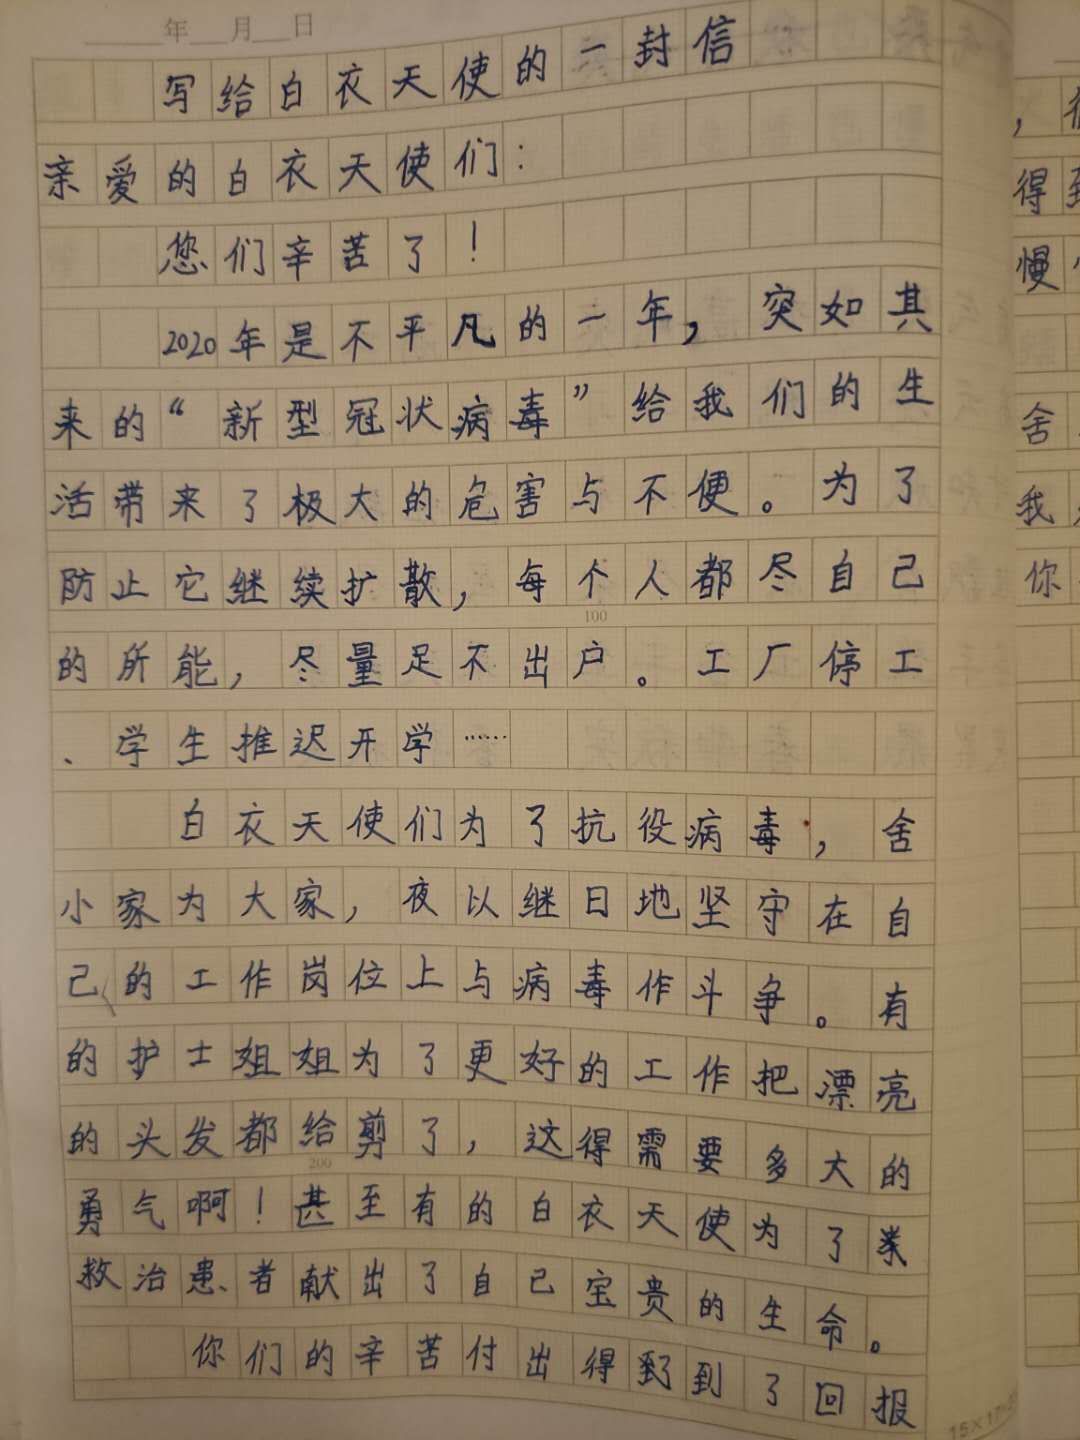 年 月 日
写给白衣天使的一封信
亲爱的白衣天使们：
您们辛苦了！
2020年是不平凡的一年，突如其
来的“新型冠状病毒”给我们的生
活带来了极大的危害与不便。为了
防止它继续扩散，每个人都尽自己
100
的所能，尽量足不出户。工厂停工
、学生推迟开学……
白衣天使们为了抗役病毒，舍
小家为大家，夜以继日地坚守在自
己的工作岗位上与病毒作斗争。有
的护士姐姐为了更好的工作把漂亮
的头发都给剪了，这得需要多大的
200
勇气啊！甚至有的白衣天使为了
救治患者献出了自己宝贵的生命。
你们的辛苦付出得到了回报
，
得到
慢
舍
我
你
15×17=2